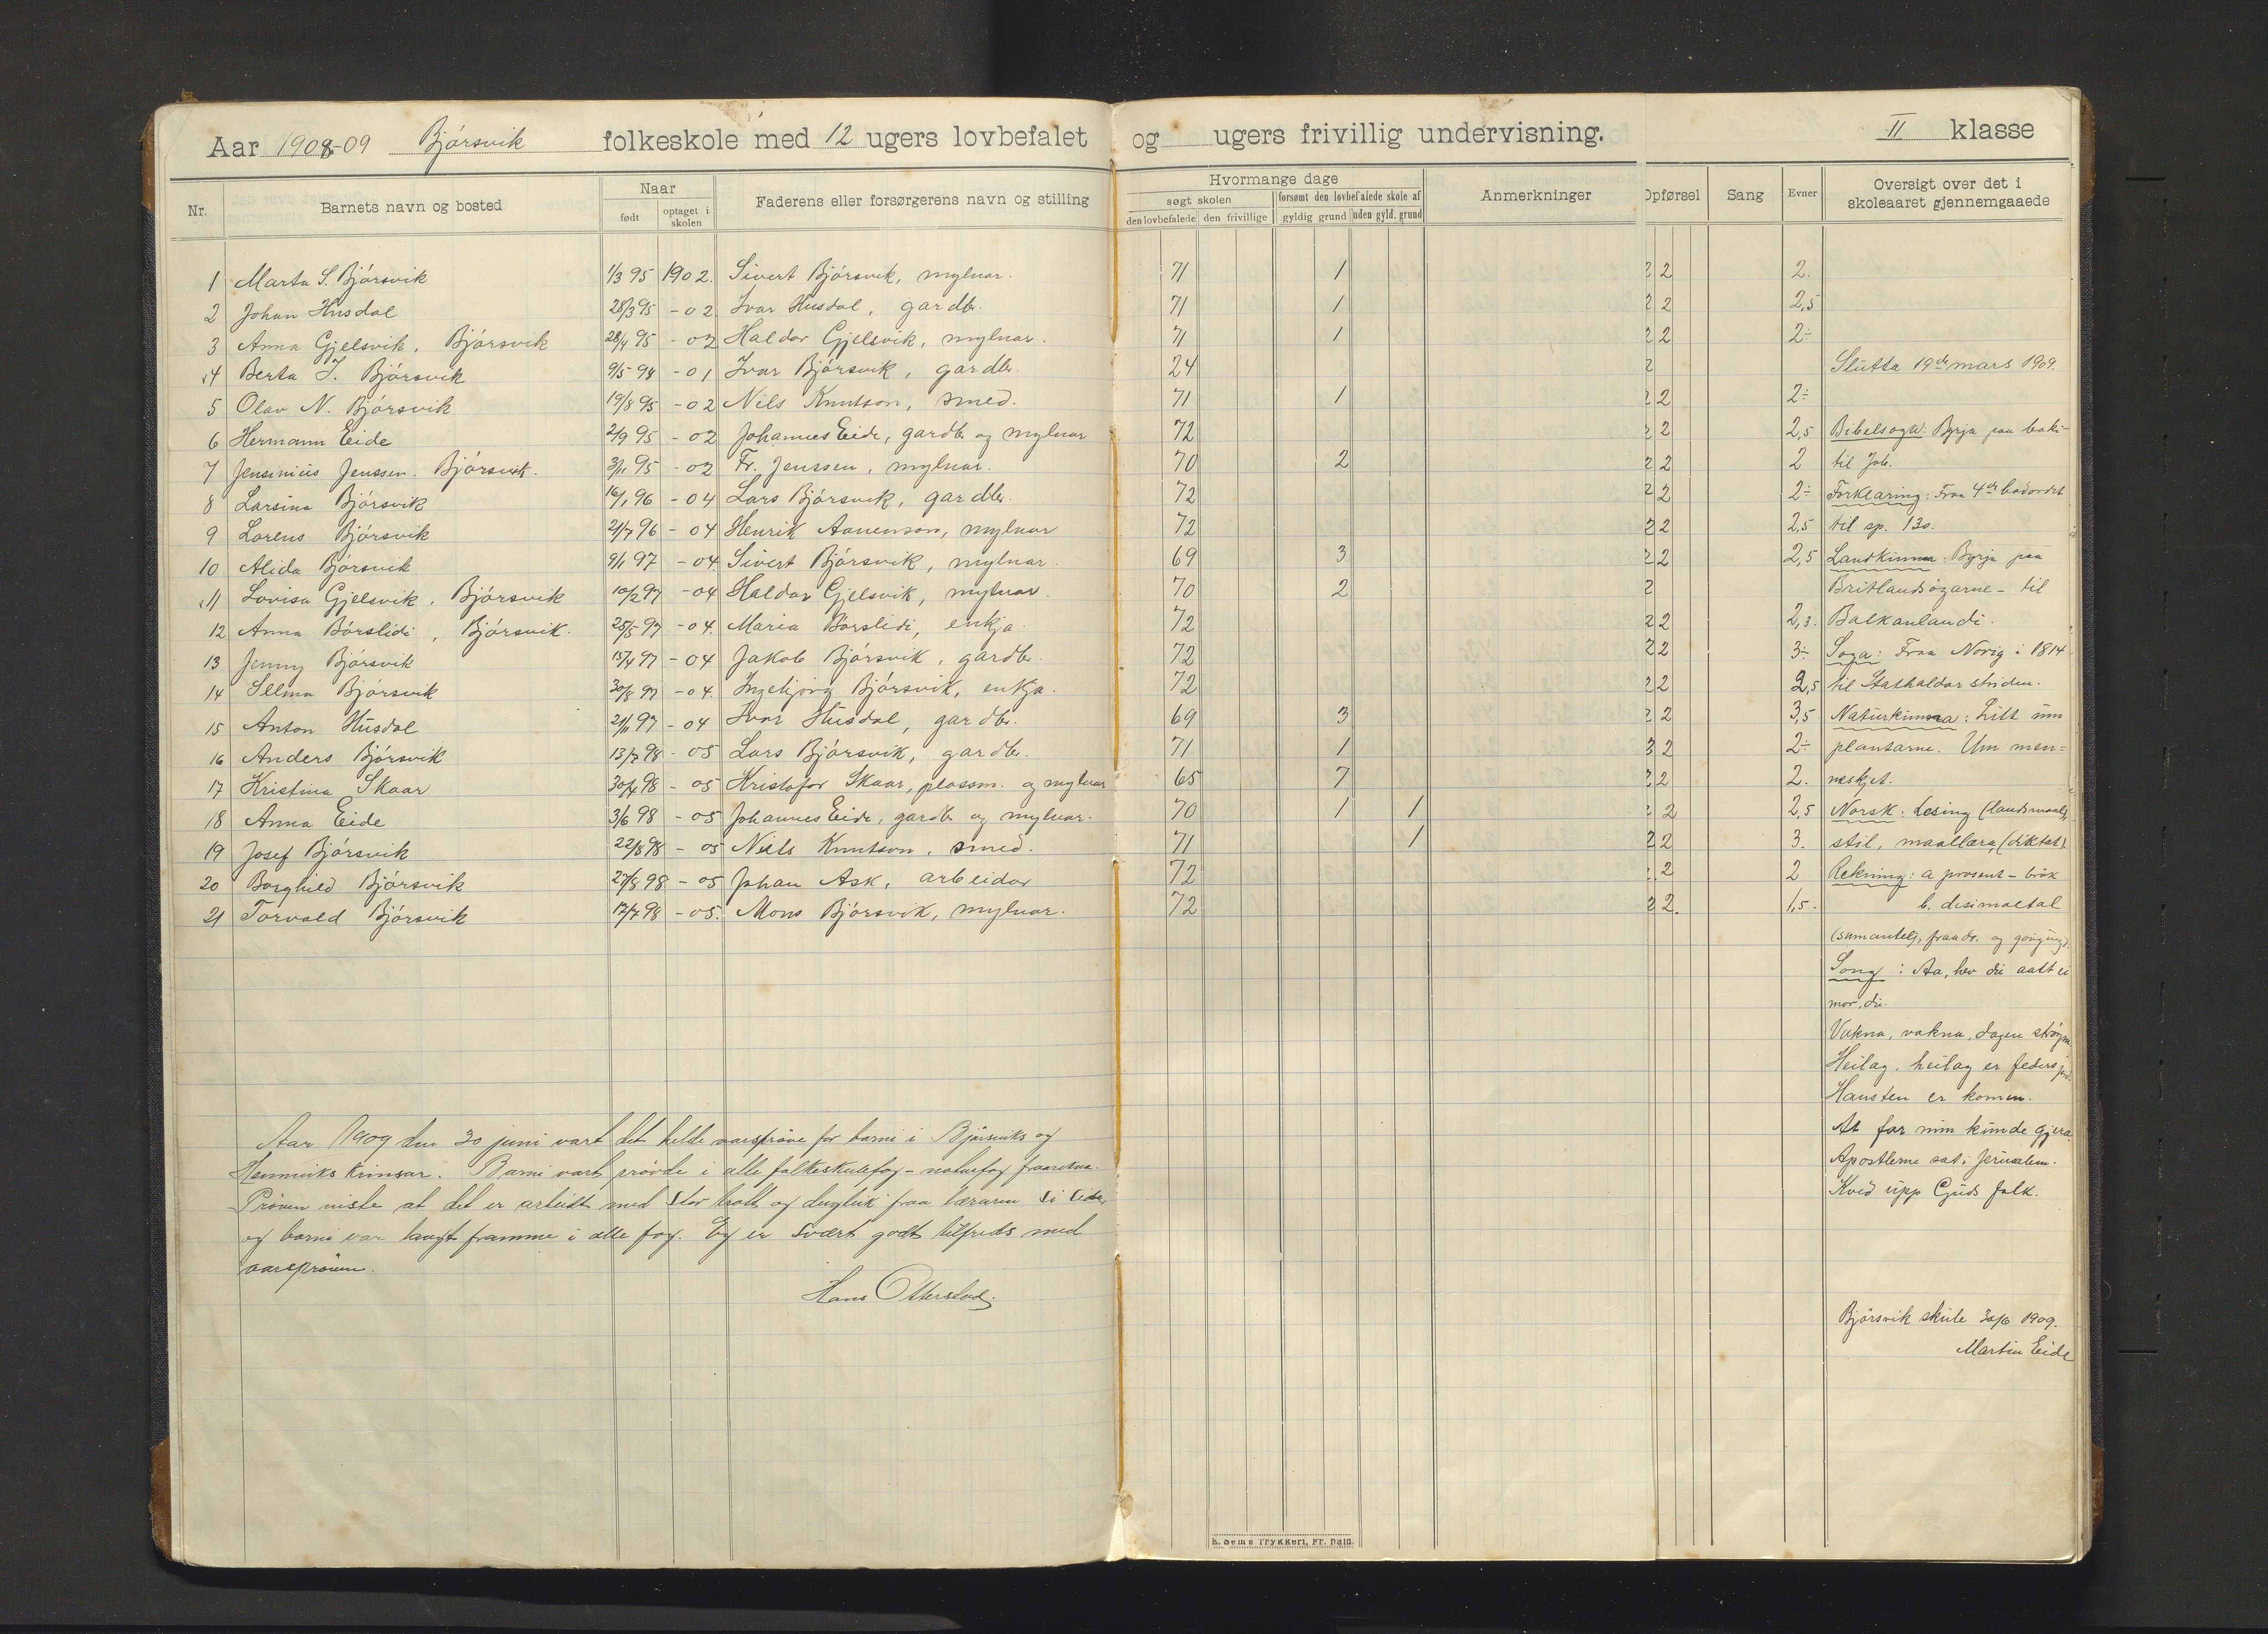 Aar 1908-09 Bjórsvik folkeskole med 12 ugers lovbefalet og ugers frivillig undervisning. II klasse
Nr. Barnets navn og bosted Naar født optaget i skolen Faderens eller forsørgerens navn og stilling Hvormange dage søgt skolen den lovbefalede den frivillige forsømt den lovbefalede skole af gyldig grund uden gyld. grund Anmerkninger Opførsel Sang Evner Oversigt over det i skoleaaret gjennemgaaede
1 Marta S. Bjórsvik 1/3 95 1902. Sivert Bjórsvik, mylnar. 71 1 2 2 2.
2 Johan Husdal 28/3 95 -02 Ivar Husdal, gardbr. 71 1 2 2 2,5
3 Anna Gjelsvik, Bjórsvik 28/4 95 -02 Haldor Gjelsvik, mylnar. 71 1 2 2 2÷
4 Berta I. Bjórsvik 9/5 94 -01 Ivar Bjórsvik, gardbr. 24 2 Slutta 19de mars 1909.
5 Olav N. Bjórsvik 19/8 95 -02 Nils Knutson, smed. 71 1 2 2 2÷
6 Hermann Eide 2/9 95 -02 Johannes Eide, gardbr og mylnar 72 2 2 2,5 Bibelsoga: Byrja paa
7 Jensinius Jenssen. Bjórsvik. 3/11 95 -02 Fr. Jenssen, mylnar. 70 2 2 2 2 til Job.
8 Larsina Bjórsvik 16/1 96 -04 Lars Bjórsvik, gardbr. 72 2 2 2÷ Forklaring: Fraa 4de bodordet
9 Lorens Bjórsvik 21/7 96 -04 Henrik Aanenson, mylnar 72 2 2 2,5 til sp. 130.
10 Alida Bjórsvik 9/1 97 -04 Sivert Bjórsvik, mylnar. 69 3 2 2 2,5 Landkunna: Byrja paa
11 Lovisa Gjelsvik, Bjórsvik 10/2 97 -04 Haldor Gjelsvik, mylnar. 70 2 2 Britlandsóyarne - til
12 Anna Bórslidi, Bjórsvik. 25/5 97 -04. Maria Bórslidi, enkja. 72 2 2 2,3. Balkanlandi.
13 Jenny Bjórsvik 15/4 97 -04 Jakob Bjórsvik, gardbr. 72 2 2 3÷ Soga: Fraa Norig i 1814
14 Selma Bjórsvik 30/8 97 -04. Ingebjórg Bjórsvik, enkja. 72 2 2 2,5 til Stathaldarstriden.
15 Anton Husdal 21/11 97 -04 Ivar Husdal, gardbr. 69 3 2 2 3,5 Naturkunna: Litt um
16 Anders Bjórsvik 13/7 98 -05 Lars Bjórsvik, gardbr. 71 1 3 2 2÷ plantarne. Um men=
17 Kristina Skaar 30/4 98 -05 Kristofor Skaar, plassm. og mylnar 65 7 2 2 2. neskjet.
18 Anna Eide 3/6 98 -05 Johannes Eide, gardbr og mylnar. 70 1 1 2 2 2,5 Norsk: Lesing (landsmaal),
19 Josef Bjórsvik 22/8 98 -05 Nils Knutson, smed. 71 1 2 2 3. stil, maallæra, (diktat).
20 Borghild Bjórsvik 27/8 98 -05 Johan Ask, arbeidar 72 2 2 Rekning: a. prosent - brók
21 Torvald Bjórsvik 17/7 98 -05. Mons Bjórsvik, mylnar. 72 2 2. 1,5. b. desimaltal
(sumantelj, fraadr. og gonging).
Song: Aa, hev du aatt ei
mor, du.
Vakna, vakna, dagen
Heilag, heilag er
Hausten er komen.
At far min kunde gjera
Apostlerne sat i Jerusalem.
Kved upp Guds folk.
Aar 1909 den 30 juni vart det helde aarspróve for borni i Bjórsviks og
Henviks krinsar. Borni vart próvde i alle folkeskulefag - naturfag fraarekna.
Próven viste at det er arbeidt med stor trott og dugleik fraa læraren si side,
og borni var langt framme i alle fag. Eg er svært godt tilfreds med
aarspróven.
Hans Otterstad.
Bjórsvik skule 30/6 1909.
Martin Eide
E. Sems Trykkeri, Fr. hald.